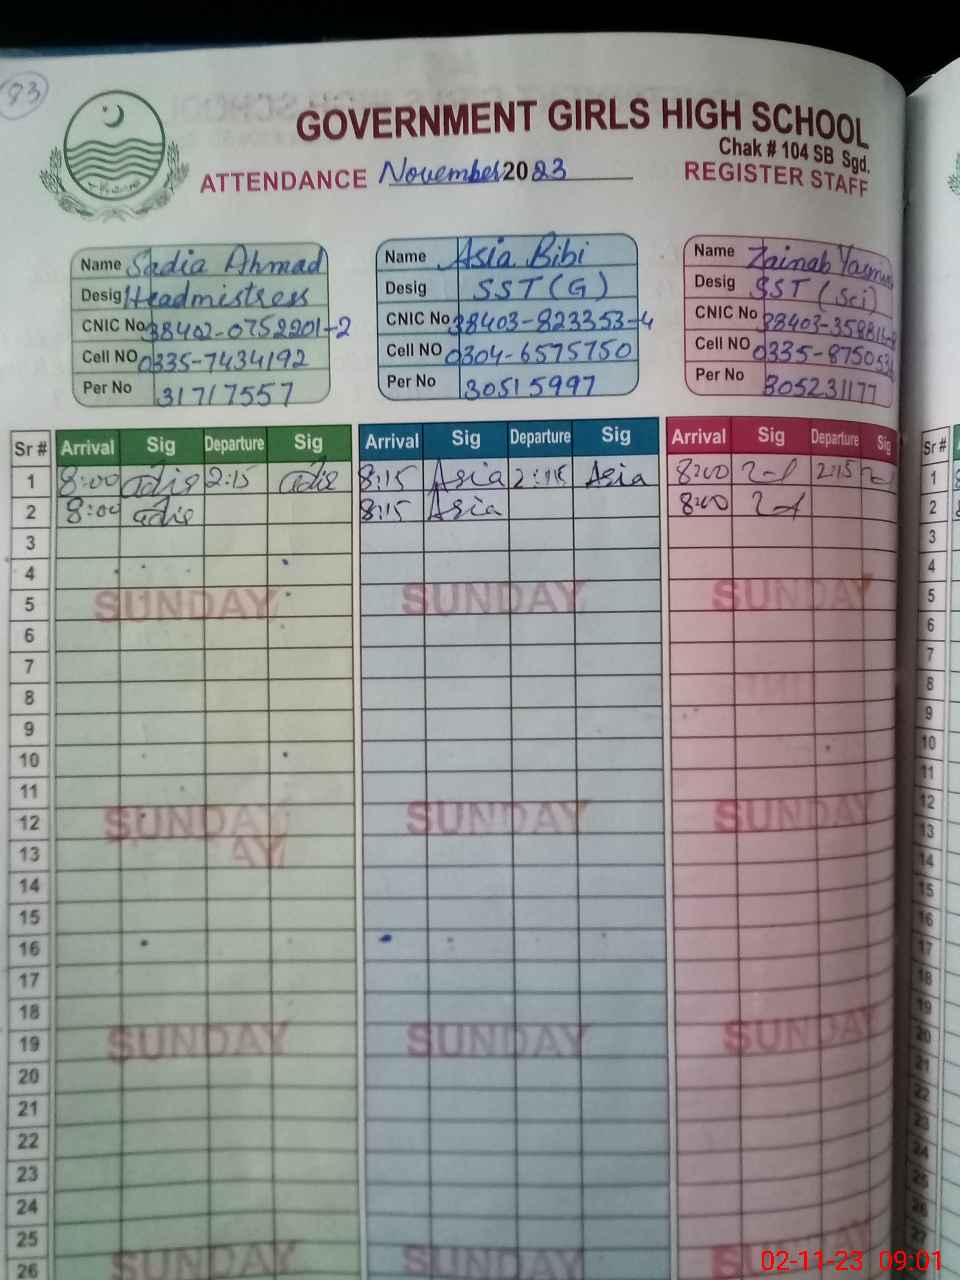 93
GOVERNMENT GIRLS HIGH SCHOOL
Chak # 104 SB Sgd.
ATTENDANCE November 2023 REGISTER STAFF
Name Sadia Ahmad
Desig Headmistress
CNIC No 38402-0752201-2
Cell NO 0335-7434192
Per No 31717557
Name Asia Bibi
Desig SST (G)
CNIC No 38403-823353-4
Cell NO 0304-6575750
Per No 30515997
Name Zainab Yasmin
Desig SST (Sci)
CNIC No
Cell NO
Per No 305231177
Sr # Arrival Sig Departure Sig Arrival Sig Departure Sig Arrival Sig Departure Sig Sr #
1 8:00 2:15 8:15 Asia 2:15 Asia 8:00 2:15 1
2 8:00 8:15 Asia 8:00 2
3 3
4 4
5 SUNDAY SUNDAY SUNDAY 5
6 6
7 7
8 8
9 9
10 10
11 11
12 SUNDAY SUNDAY SUNDAY 12
13 AY 13
14 14
15 15
16 16
17 17
18 18
19 SUNDAY SUNDAY SUNDAY 19
20 20
21 21
22 22
23 23
24 24
25 25
26 SUNDAY SUNDAY SUNDAY
27
02-11-23 09:01